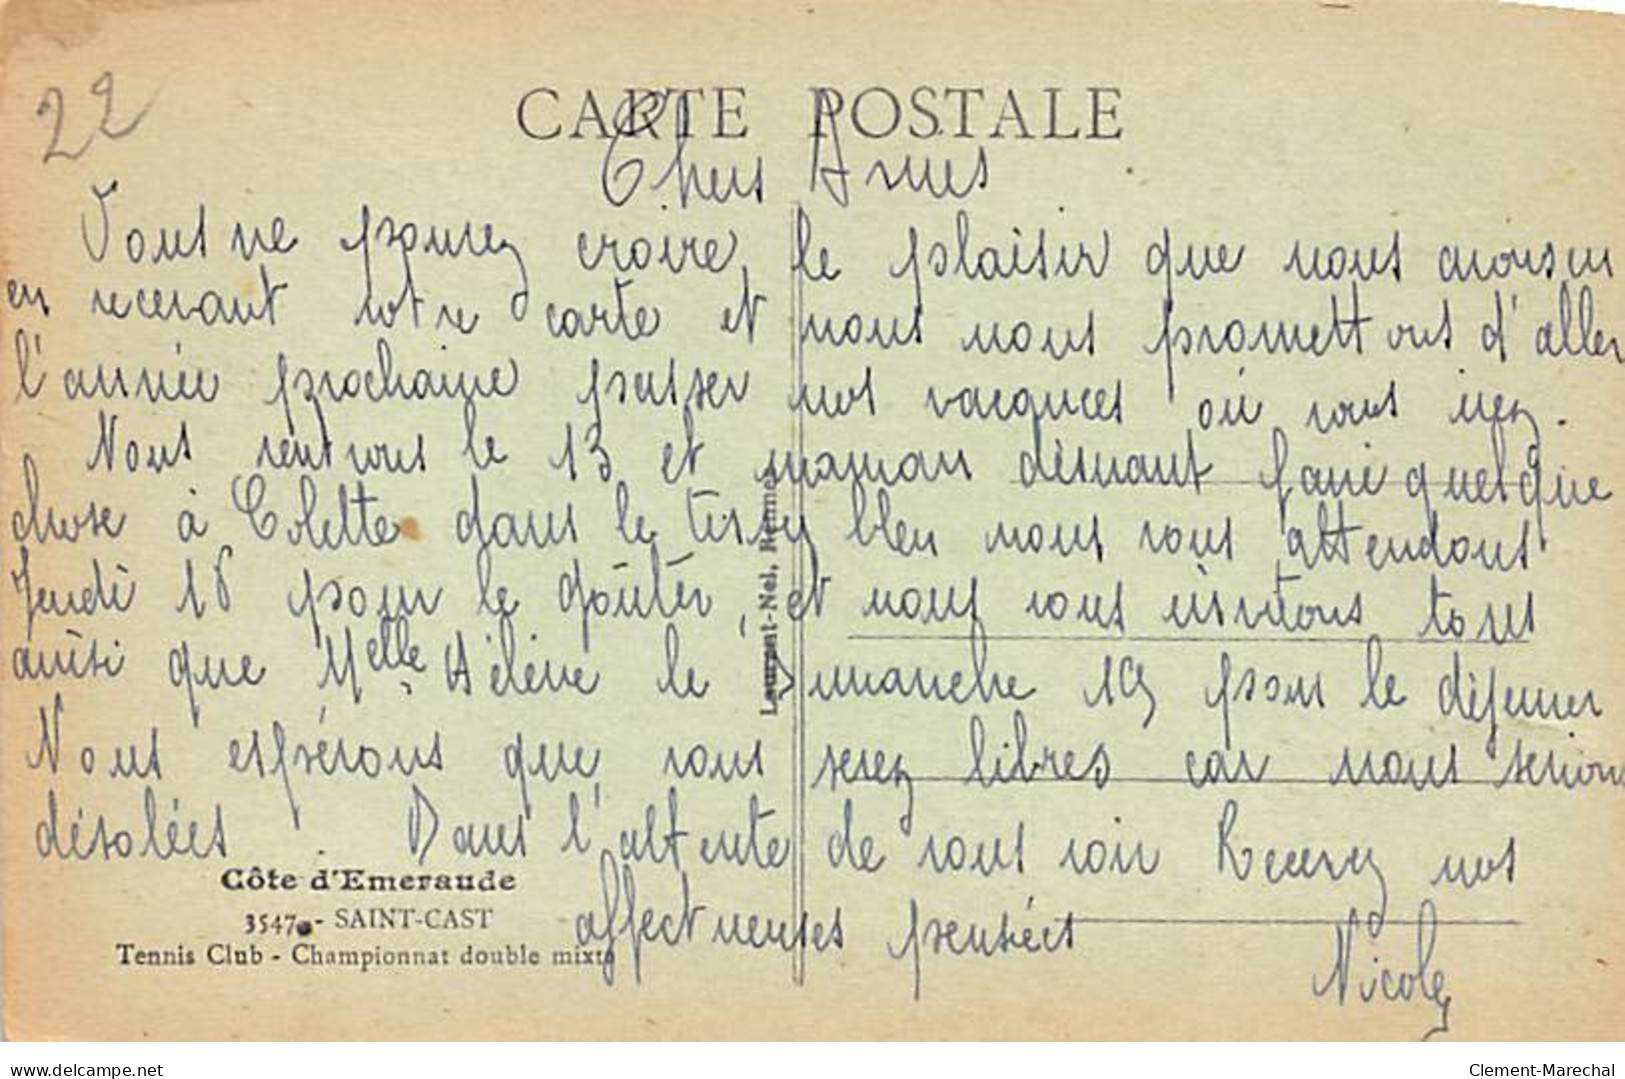 22
CARTE POSTALE
Chers Amis
Vous ne pouvez croire le plaisir que nous avons eu
en recevant votre carte et nous nous promettons d'aller
l'année prochaine passer nos vacances où vous irez.
Nous rentrons le 13 et maman désirant faire quelque
chose à Colette dans le tissu bleu nous vous attendons
Jeudi 16 pour le goûter, et nous vous invitons tous
ainsi que Melle Hélène le Dimanche 19 pour le déjeuner
Nous espérons que vous serez libres car nous serions
désolées. Dans l'attente de vous voir Recevez nos
affectueuses pensées
Nicole
Laurent-Nel, Rennes
Côte d'Emeraude
3547 - SAINT-CAST
Tennis Club - Championnat double mixte
delcampe.net
Clement-Marechal